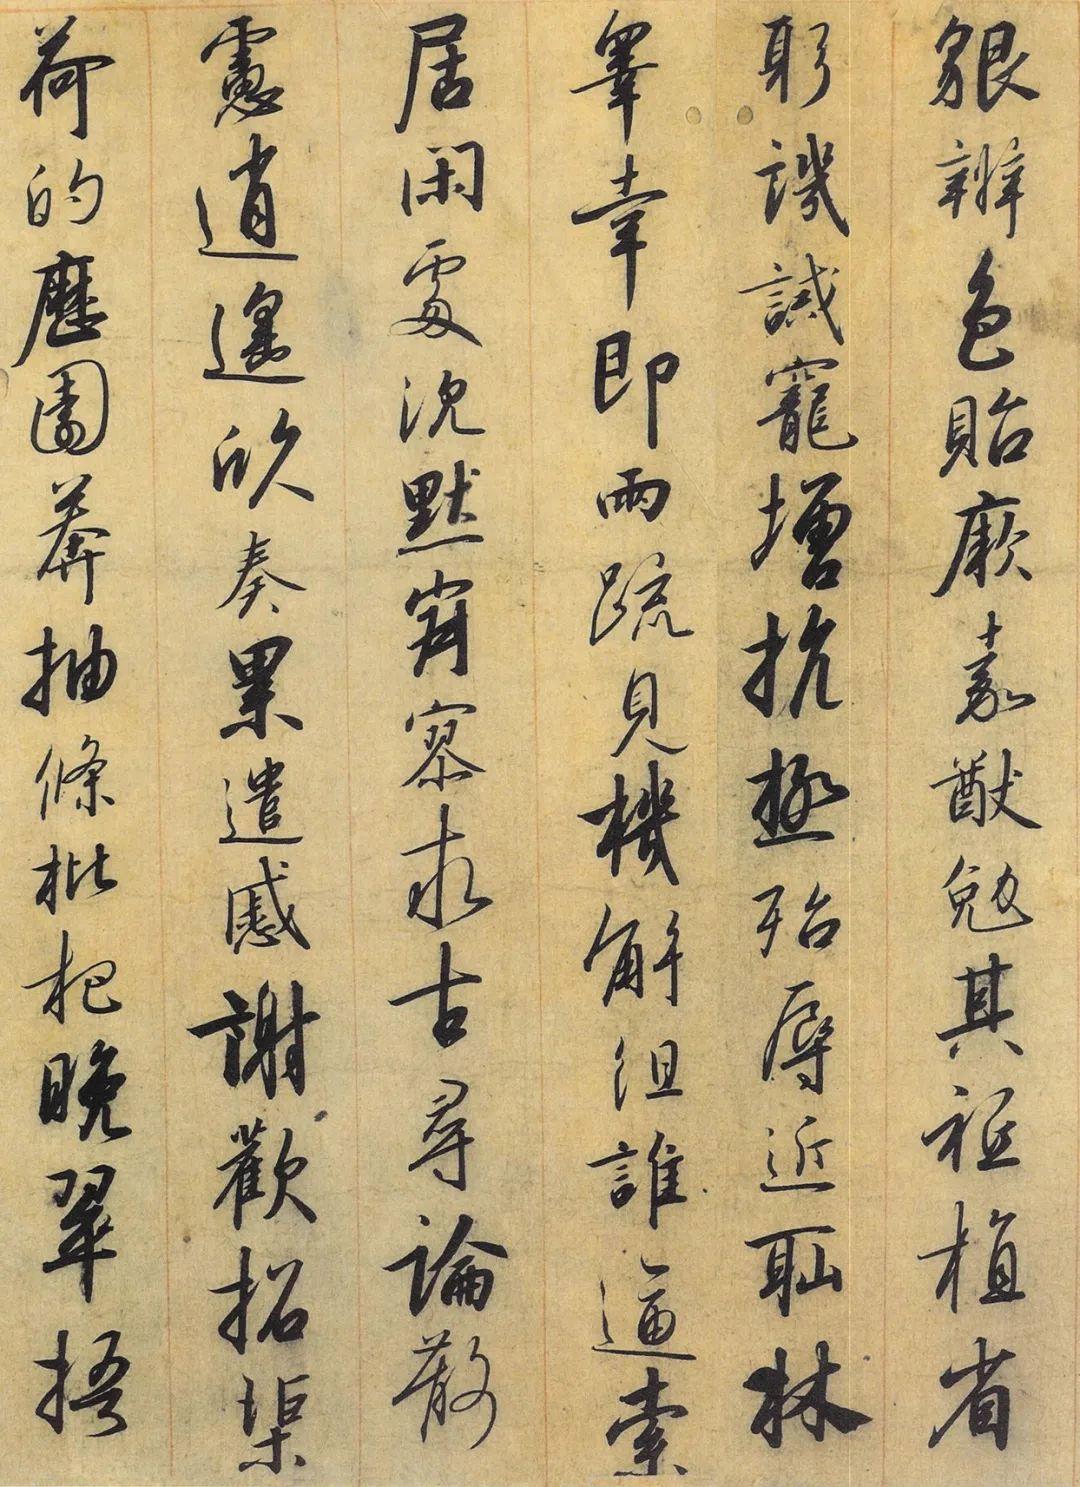 貌辨色貽厥嘉猷勉其祗植省
躬譏誡寵增抗極殆辱近耻林
皋幸即兩疏見機解組誰逼索
居閑處沈默寂寥求古尋論散
慮逍遙欣奏累遣慼謝歡招渠
荷的歷園莽抽條枇杷晚翠梧